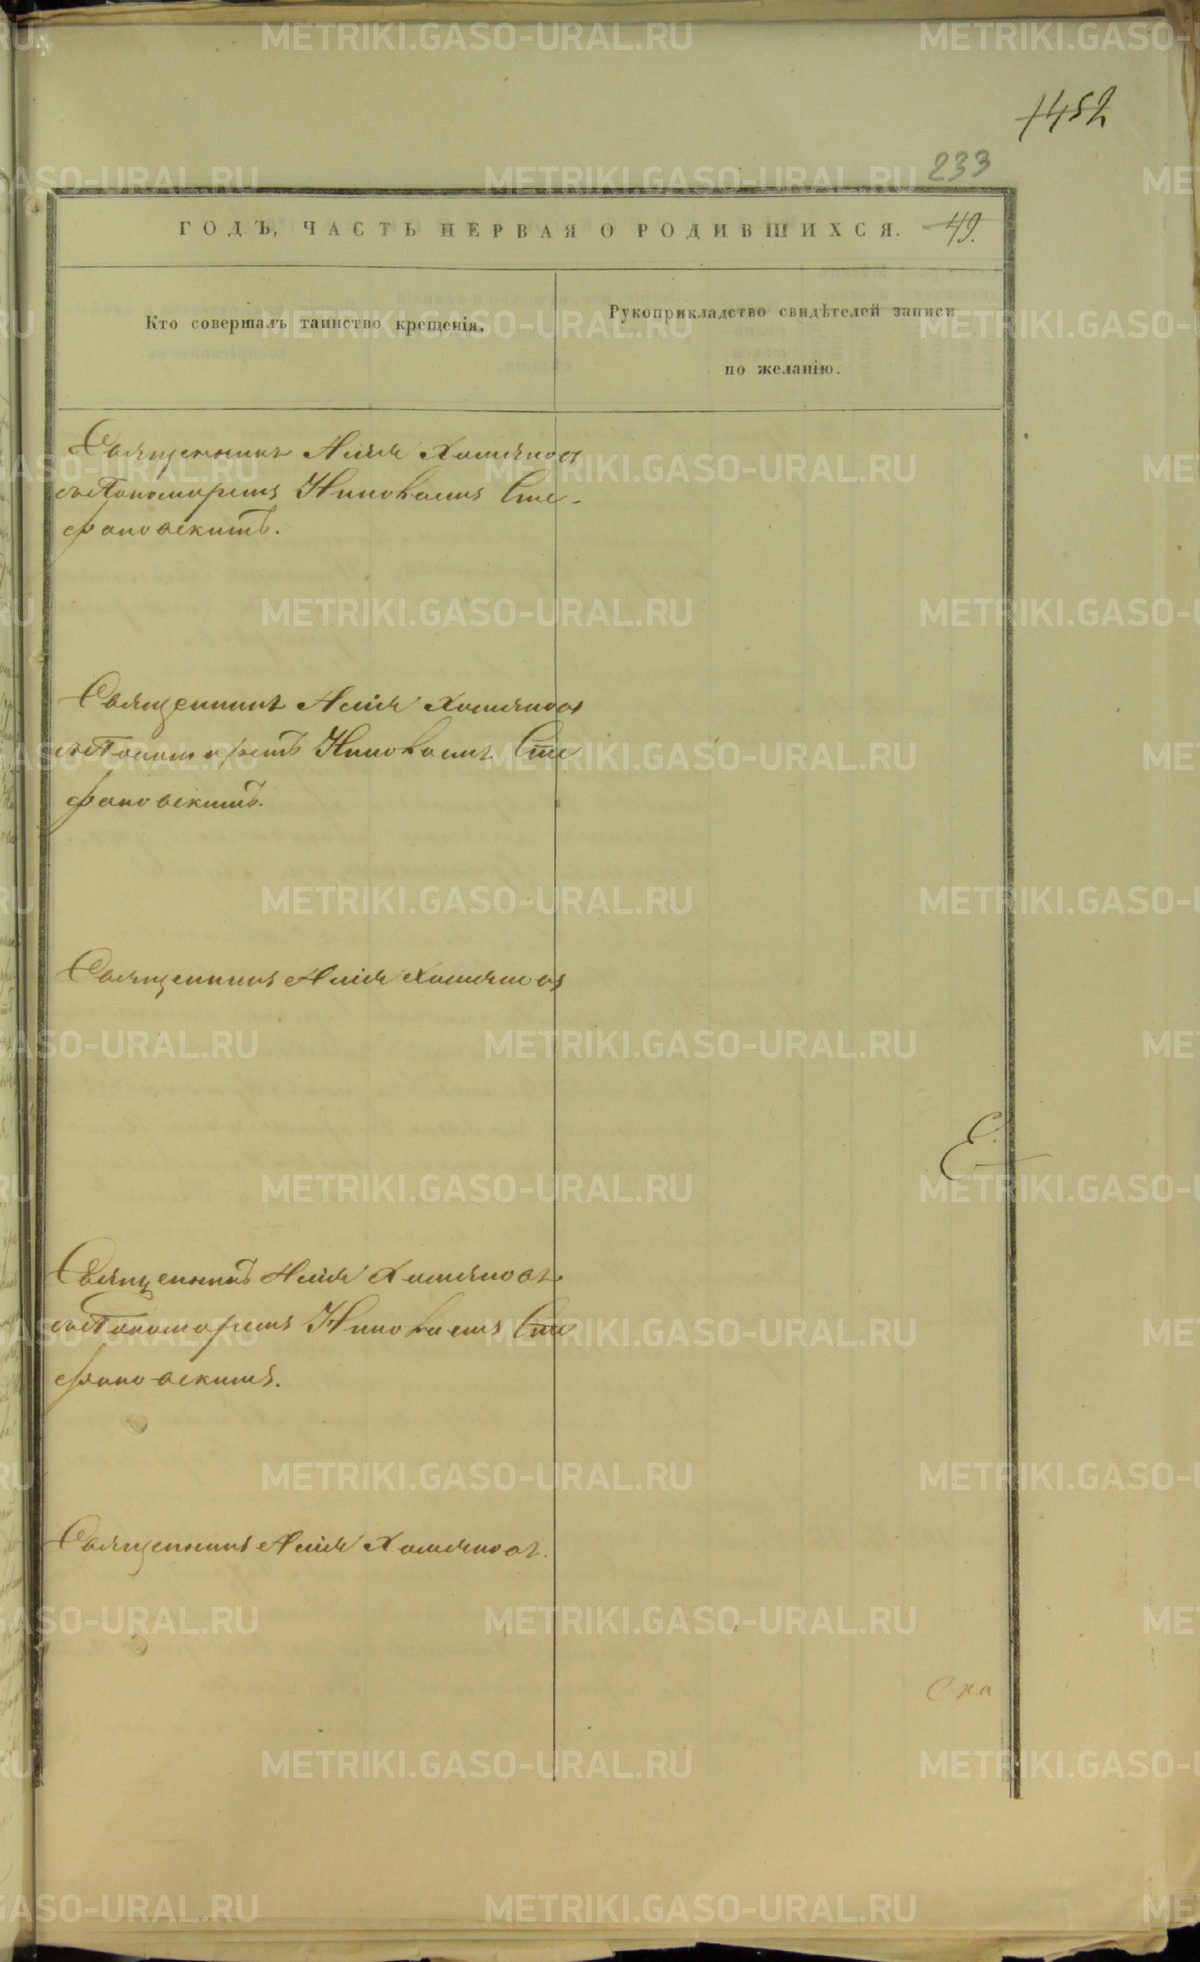 1452
233
ГОДЪ, ЧАСТЬ ПЕРВАЯ О РОДИВШИХСЯ. 49.
Кто совершалъ таинство крещенія.
Рукоприкладство свидѣтелей записи
по желанію.
Священникъ Илія Хомяковъ
съ Пономаремъ Николаемъ Сте-
фановскимъ.
Священникъ Илія Хомяковъ
съ Пономаремъ Николаемъ Сте
фановскимъ.
Священникъ Илія Хомяковъ
Священникъ Илія Хомяковъ
съ Пономаремъ Николаемъ Сте
фановскимъ.
Священникъ Илія Хомяковъ.
METRIKI.GASO-URAL.RU